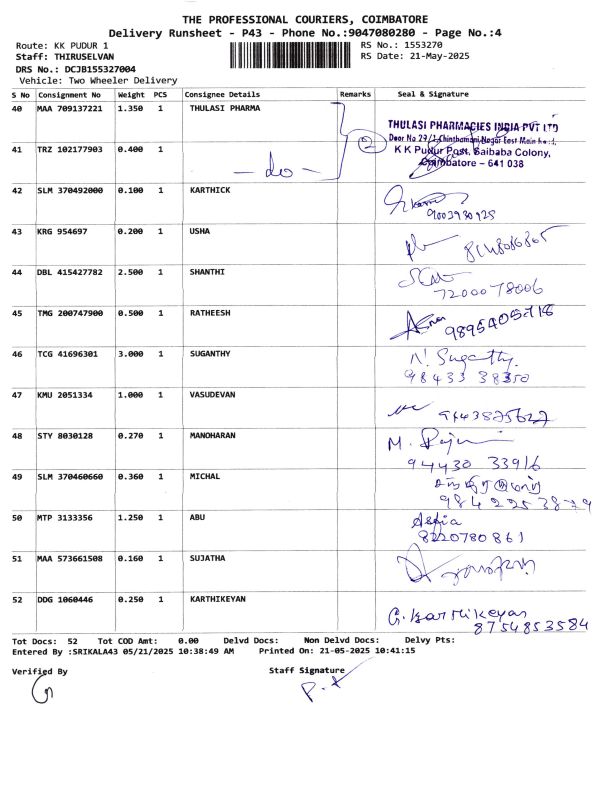 THE PROFESSIONAL COURIERS, COIMBATORE
Delivery Runsheet - P43 - Phone No.:9047080280 - Page No.:4
Route: KK PUDUR 1 RS No.: 1553270
Staff: THIRUSELVAN RS Date: 21-May-2025
DRS No.: DCJB155327004
Vehicle: Two Wheeler Delivery
S No Consignment No Weight PCS Consignee Details Remarks Seal & Signature
40 MAA 709137221 1.350 1 THULASI PHARMA
THULASI PHARMACIES INDIA PVT LTD
Door No.29/1 Chinthamani Nagar East Main Road,
K K Pudur Post, Saibaba Colony,
Coimbatore – 641 038
41 TRZ 102177903 0.400 1 — do — 2
42 SLM 370492000 0.100 1 KARTHICK
9003980925
43 KRG 954697 0.200 1 USHA
44 DBL 415427782 2.500 1 SHANTHI
7200078006
45 TMG 200747900 0.500 1 RATHEESH
9895405718
46 TCG 41696301 3.000 1 SUGANTHY N. Suganthy
98433 38350
47 KMU 2051334 1.000 1 VASUDEVAN
9443875627
48 STY 8030128 0.270 1 MANOHARAN M.
94430 33916
49 SLM 370460660 0.360 1 MICHAL
9842253879
50 MTP 3133356 1.250 1 ABU
8220780861
51 MAA 573661508 0.160 1 SUJATHA
52 DDG 1060446 0.250 1 KARTHIKEYAN G. Karthikeyan
8754853584
Tot Docs: 52 Tot COD Amt: 0.00 Delvd Docs: Non Delvd Docs: Delvy Pts:
Entered By :SRIKALA43 05/21/2025 10:38:49 AM Printed On: 21-05-2025 10:41:15
Verified By Staff Signature